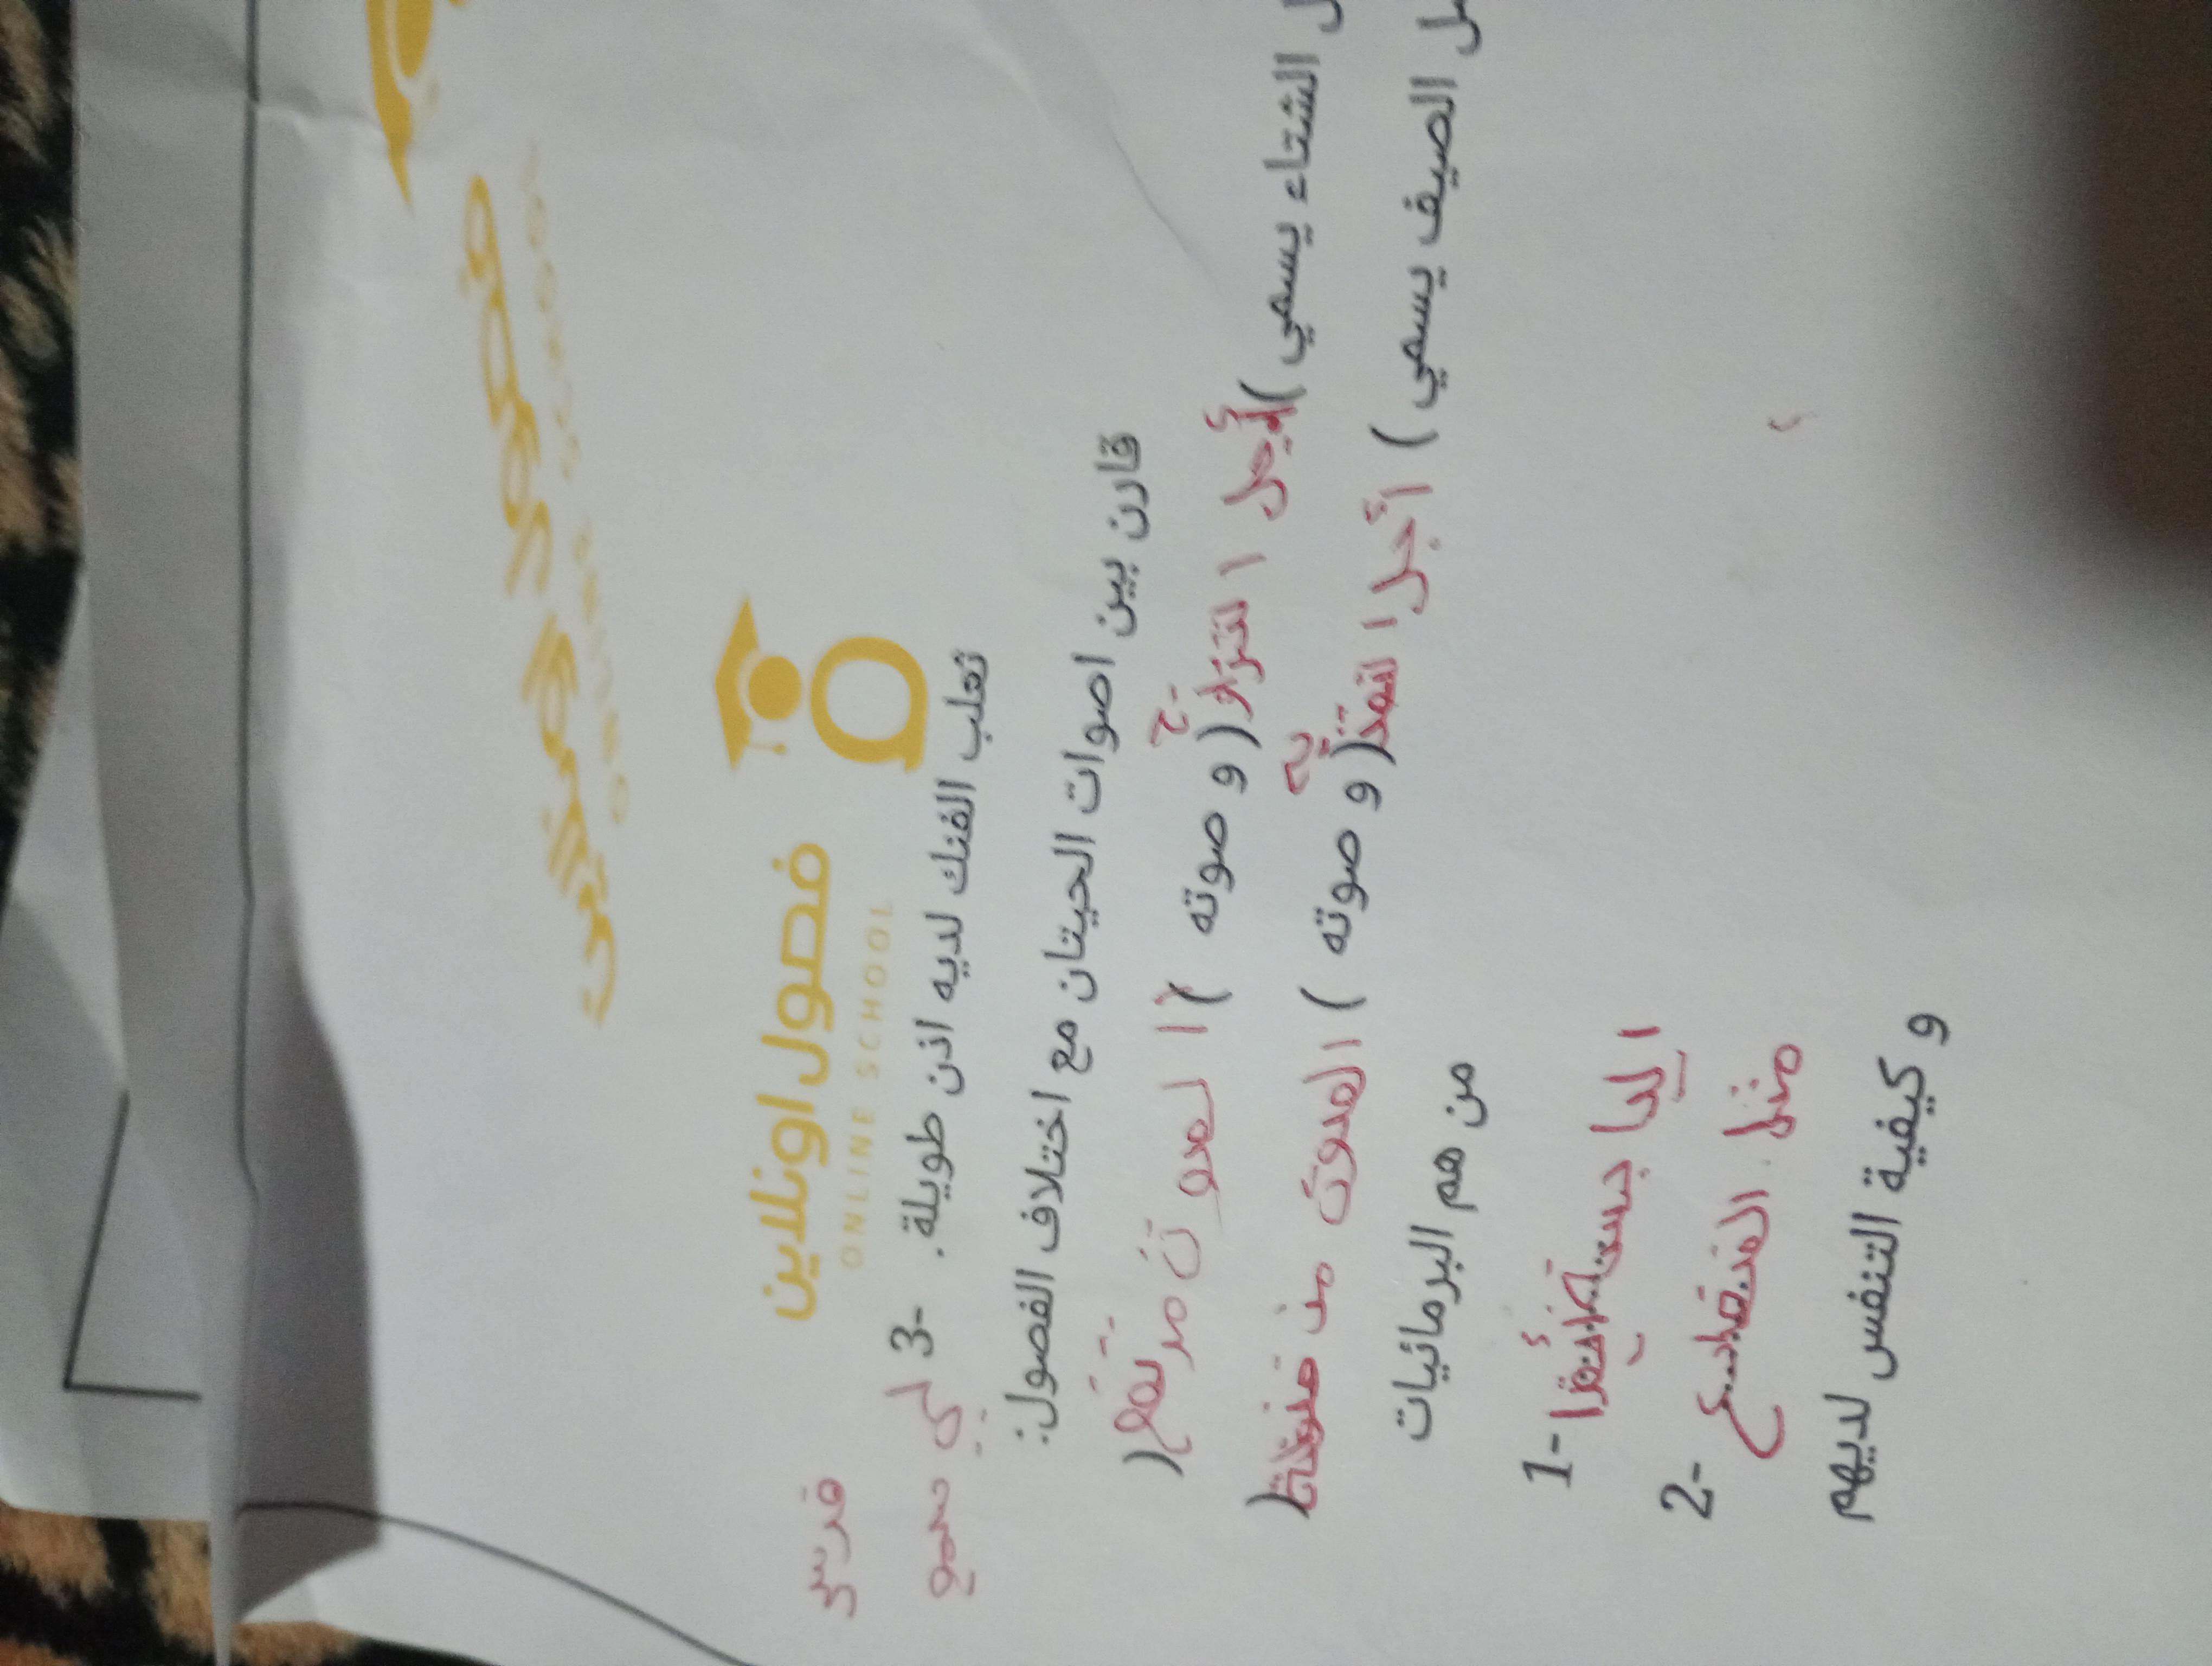 فصول اونلاين
ONLINE SCHOOL
3- ثعلب الفنك لديه اذن طويلة. لكي
سمع
قارن بين اصوات الحيتان مع اختلاف الفصول:
الشتاء يسمي (أجل التزاوج) و صوته (الصوت مرتفع)
الصيف يسمي (أجل التغذية) و صوته (الصوت
من هم البرمائيات
1-
2- مثل الضفدع
و كيفية التنفس لديهم